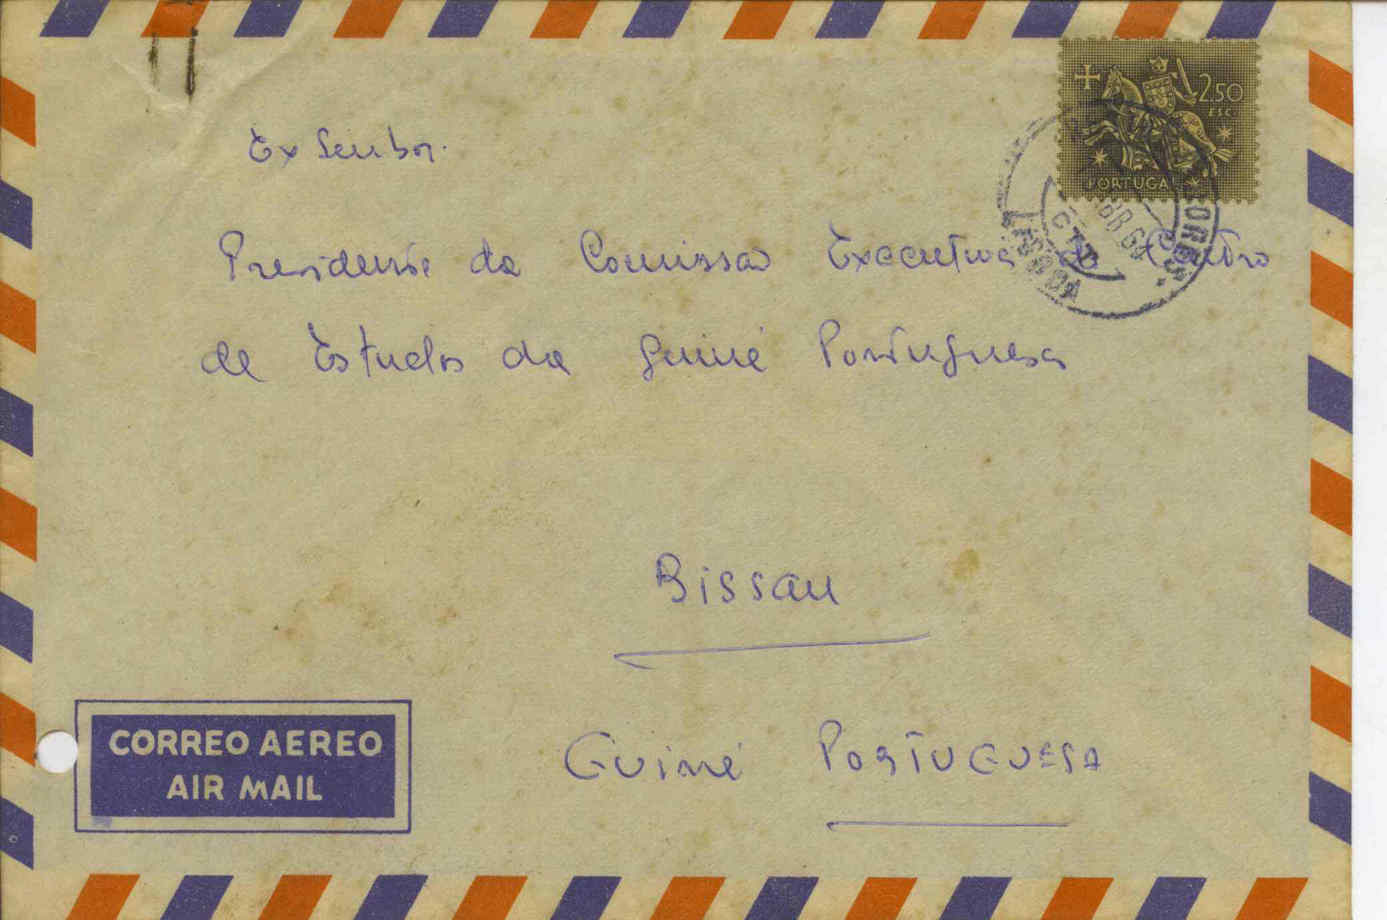 2$50
ESC.
PORTUGAL
CORREIOS
ABR 64
CTF
LISBOA
Ex Senhor.
Presidente da Comissão Executiva do Centro
de Estudos da Guiné Portuguesa
Bissau
Guiné PORTUGUESA
CORREO AEREO
AIR MAIL